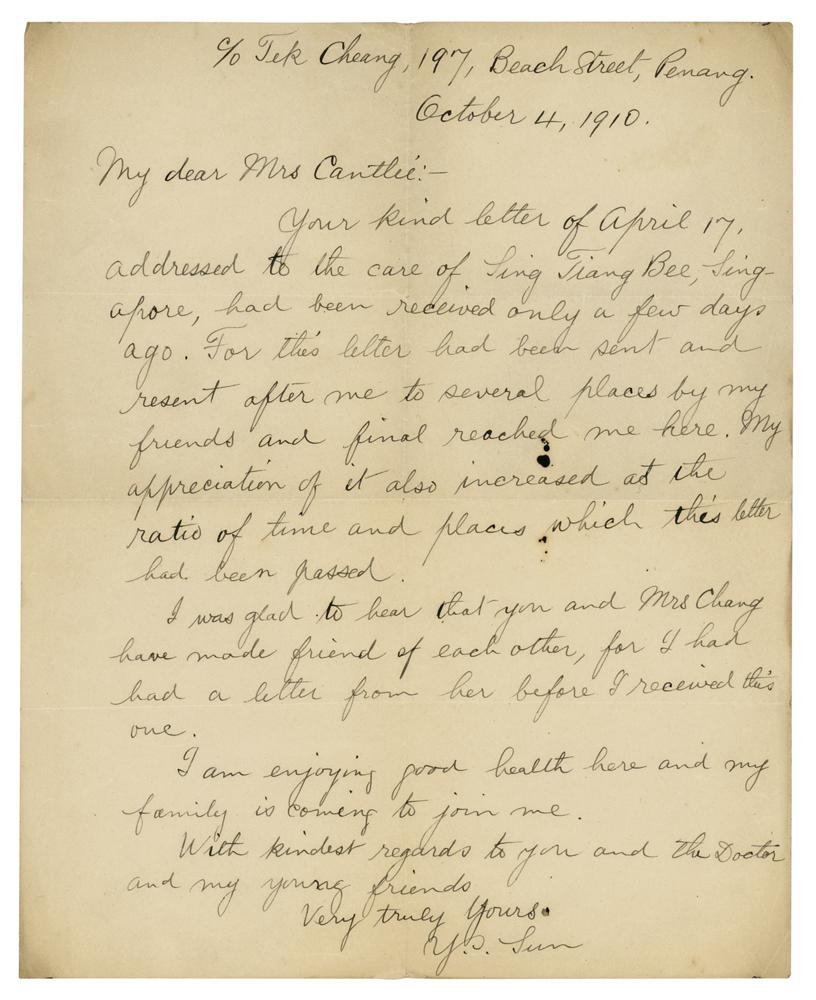 c/o Tek Cheang, 197, Beach Street, Penang.
October 4, 1910.
My dear Mrs Cantlie:—
Your kind letter of April 17,
addressed to the care of Sing Tiang Bee, Sing-
apore, had been received only a few days
ago. For this letter had been sent and
resent after me to several places by my
friends and final reached me here. My
appreciation of it also increased at the
ratio of time and places which this letter
had been passed.
I was glad to hear that you and Mrs Chang
have made friend of each other, for I had
had a letter from her before I received this
one.
I am enjoying good health here and my
family is coming to join me.
With kindest regards to you and the Doctor
and my young friends
Very truly Yours.
Y.S. Sun